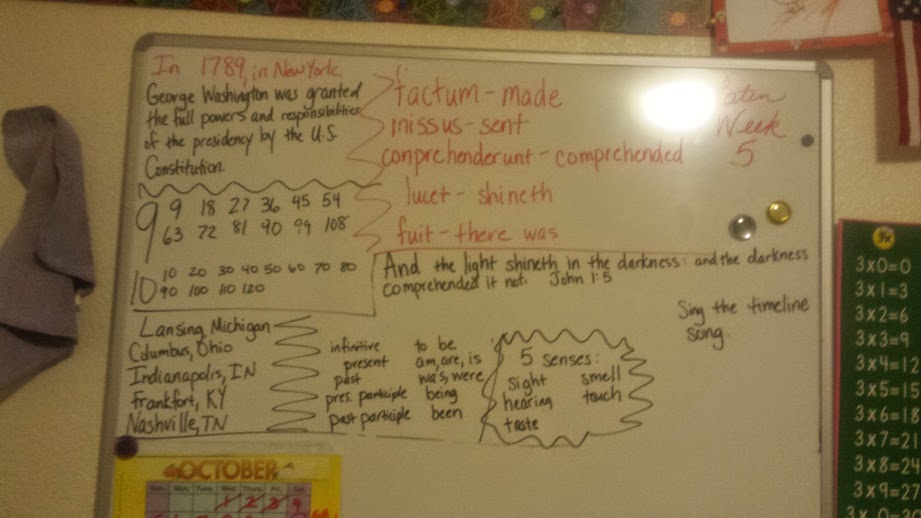 In 1789, in New York.
George Washington was granted
the full powers and responsibilities
of the presidency by the U.S.
Constitution.
factum - made
missus - sent
conprehenderunt - comprehended
lucet - shineth
fuit - there was
Week
5
9
9 18 27 36 45 54
63 72 81 90 99 108
10
10 20 30 40 50 60 70 80
90 100 110 120
And the light shineth in the darkness: and the darkness
comprehended it not. John 1:5
Sing the timeline
song.
Lansing, Michigan
Columbus, Ohio
Indianapolis, IN
Frankfort, KY
Nashville, TN
infinitive to be
present am, are, is
past was, were
pres. participle being
past participle been
5 senses:
sight smell
hearing touch
taste
OCTOBER
Sun. Mon. Tues. Wed. Thurs. Fri. Sat.
1 2 3 4
3x
3x0=0
3x1=3
3x2=6
3x3=9
3x4=12
3x5=15
3x6=18
3x7=21
3x8=24
3x9=27